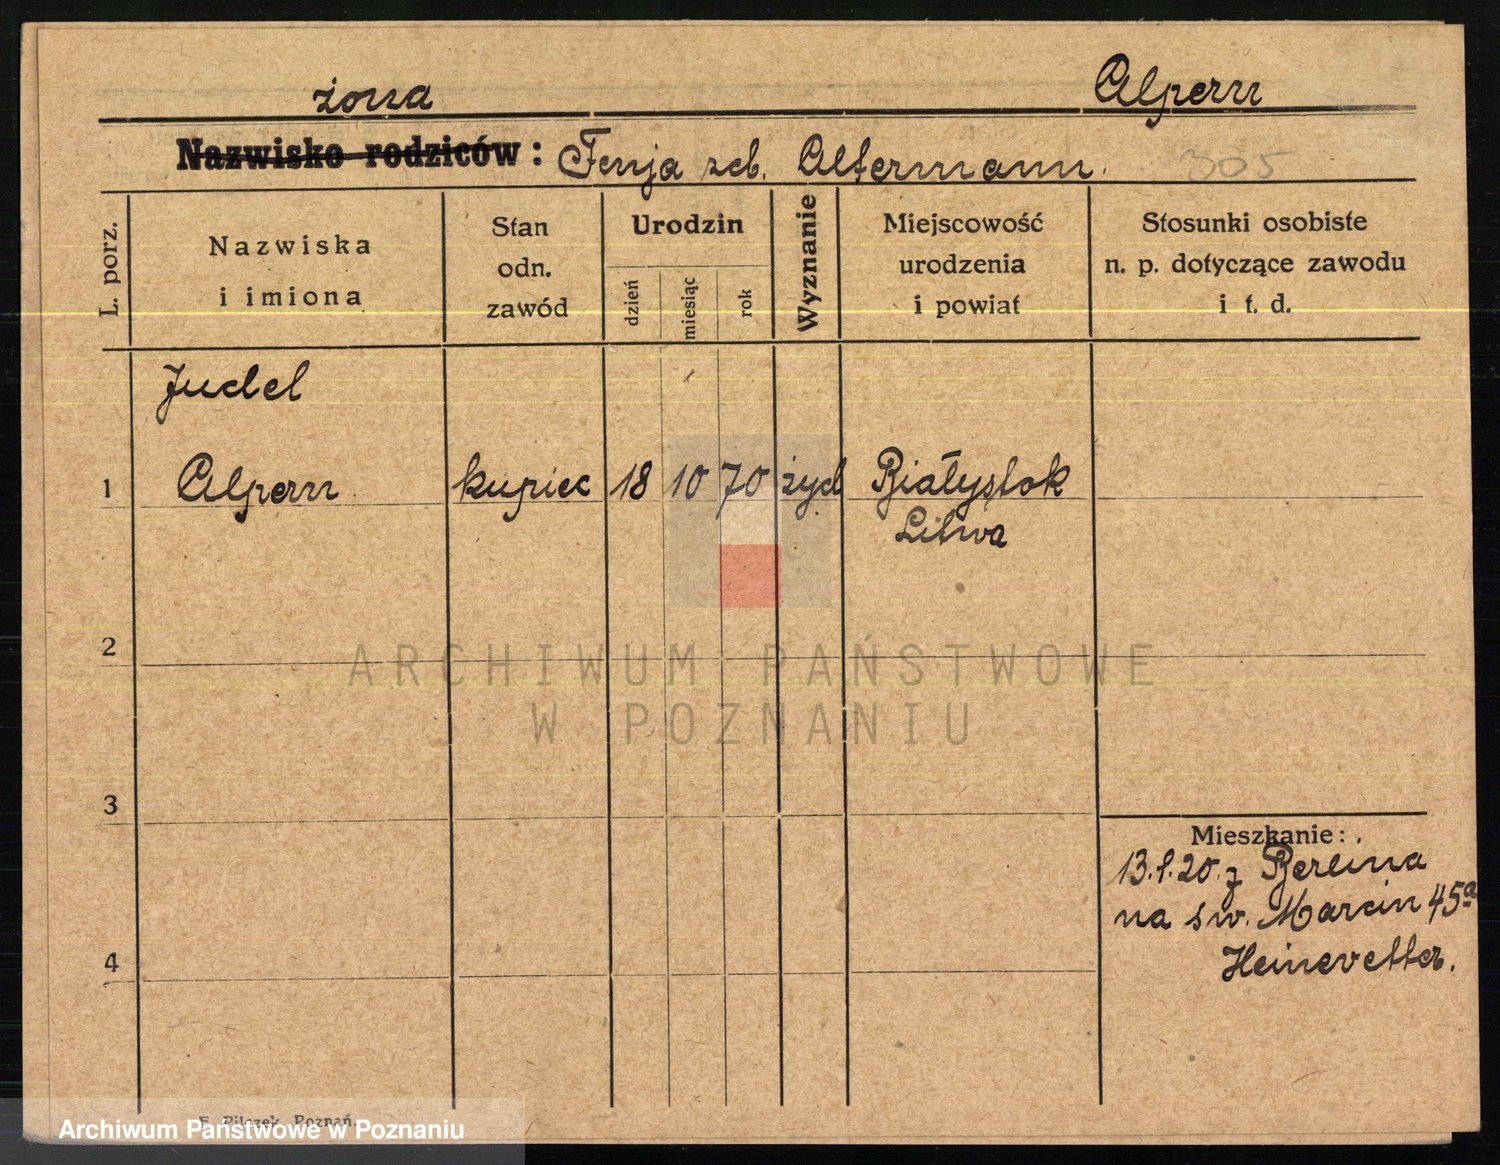 żona Alpern
Nazwisko rodziców: Fenja zeb. Altermann. 305
L. porz.
Nazwiska
i imiona
Stan
odn.
zawód
Urodzin
dzień
miesiąc
rok
Wyznanie
Miejscowość
urodzenia
i powiat
Stosunki osobiste
n. p. dotyczące zawodu
i t. d.
Judel
1 Alpern kupiec 18 10 70 żyd Białystok
Litwa
2
ARCHIWUM PAŃSTWOWE
W POZNANIU
3
Mieszkanie:
13.1.20. z Berlina
na św. Marcin 45a
4 Heinevetter.
F. Pilczek, Poznań.
Archiwum Państwowe w Poznaniu